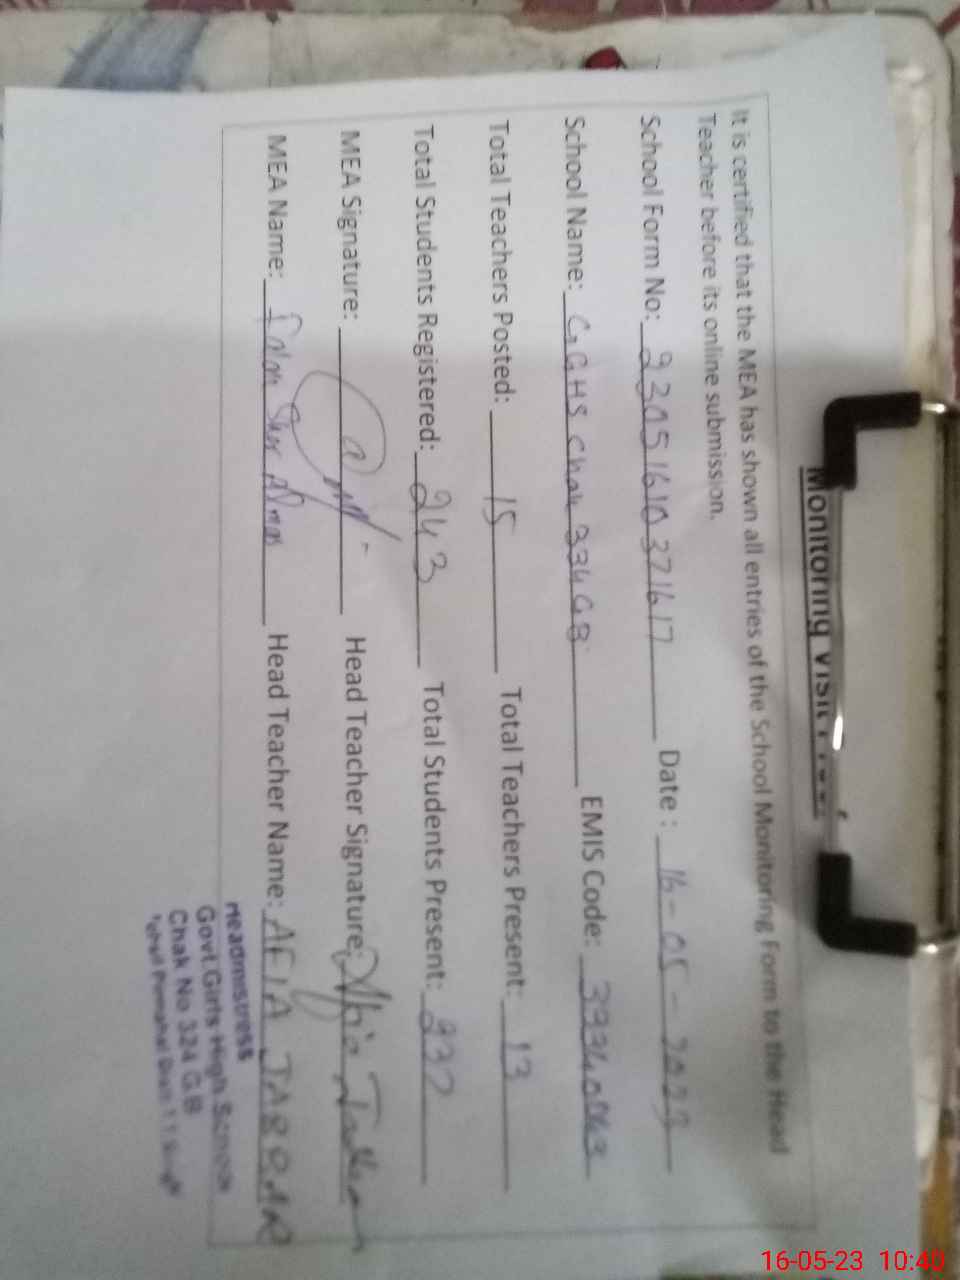 Monitoring Visit
It is certified that the MEA has shown all entries of the School Monitoring Form to the Head
Teacher before its online submission.
School Form No: 23051610371617 Date : 16-05-2023
School Name: GGHS Chak 334 GB EMIS Code:
Total Teachers Posted: 15 Total Teachers Present: 13
Total Students Registered: 243 Total Students Present: 237
MEA Signature: Head Teacher Signature:
MEA Name: Head Teacher Name: AFIA JABBAR
Headmistress
Govt Girls High School
Chak No 324 GB
16-05-23 10:40